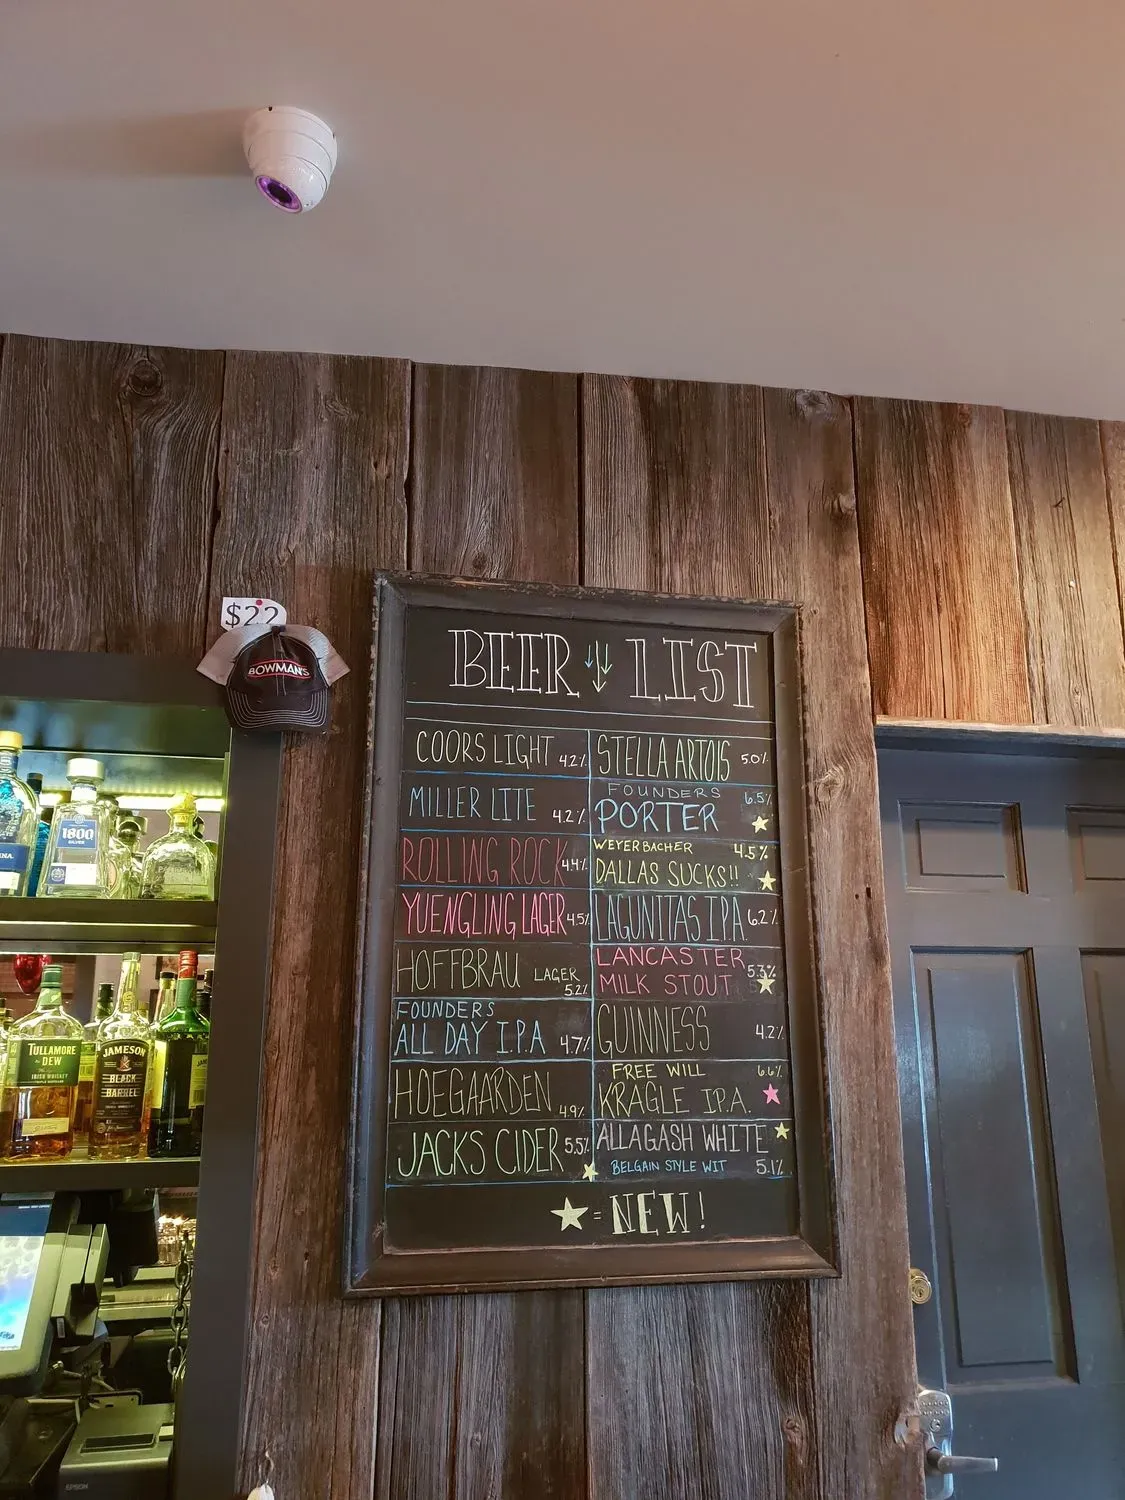 $22
BOWMAN'S
BEER LIST
COORS LIGHT 4.2%
MILLER LITE 4.2%
ROLLING ROCK 4.4%
YUENGLING LAGER 4.5%
HOFFBRAU LAGER
5.2%
FOUNDERS
ALL DAY I.P.A 4.7%
HOEGAARDEN 4.9%
JACKS CIDER 5.5%
STELLA ARTOIS 5.0%
FOUNDERS 6.5%
PORTER
WEYERBACHER 4.5%
DALLAS SUCKS!!
LAGUNITAS I.P.A. 6.2%
LANCASTER
MILK STOUT 5.3%
GUINNESS 4.2%
FREE WILL 6.6%
KRAGLE I.P.A.
ALLAGASH WHITE
BELGAIN STYLE WIT 5.1%
= NEW!
1800
SILVER
TULLAMORE
DEW
IRISH WHISKEY
JAMESON
BLACK
BARREL
EPSON